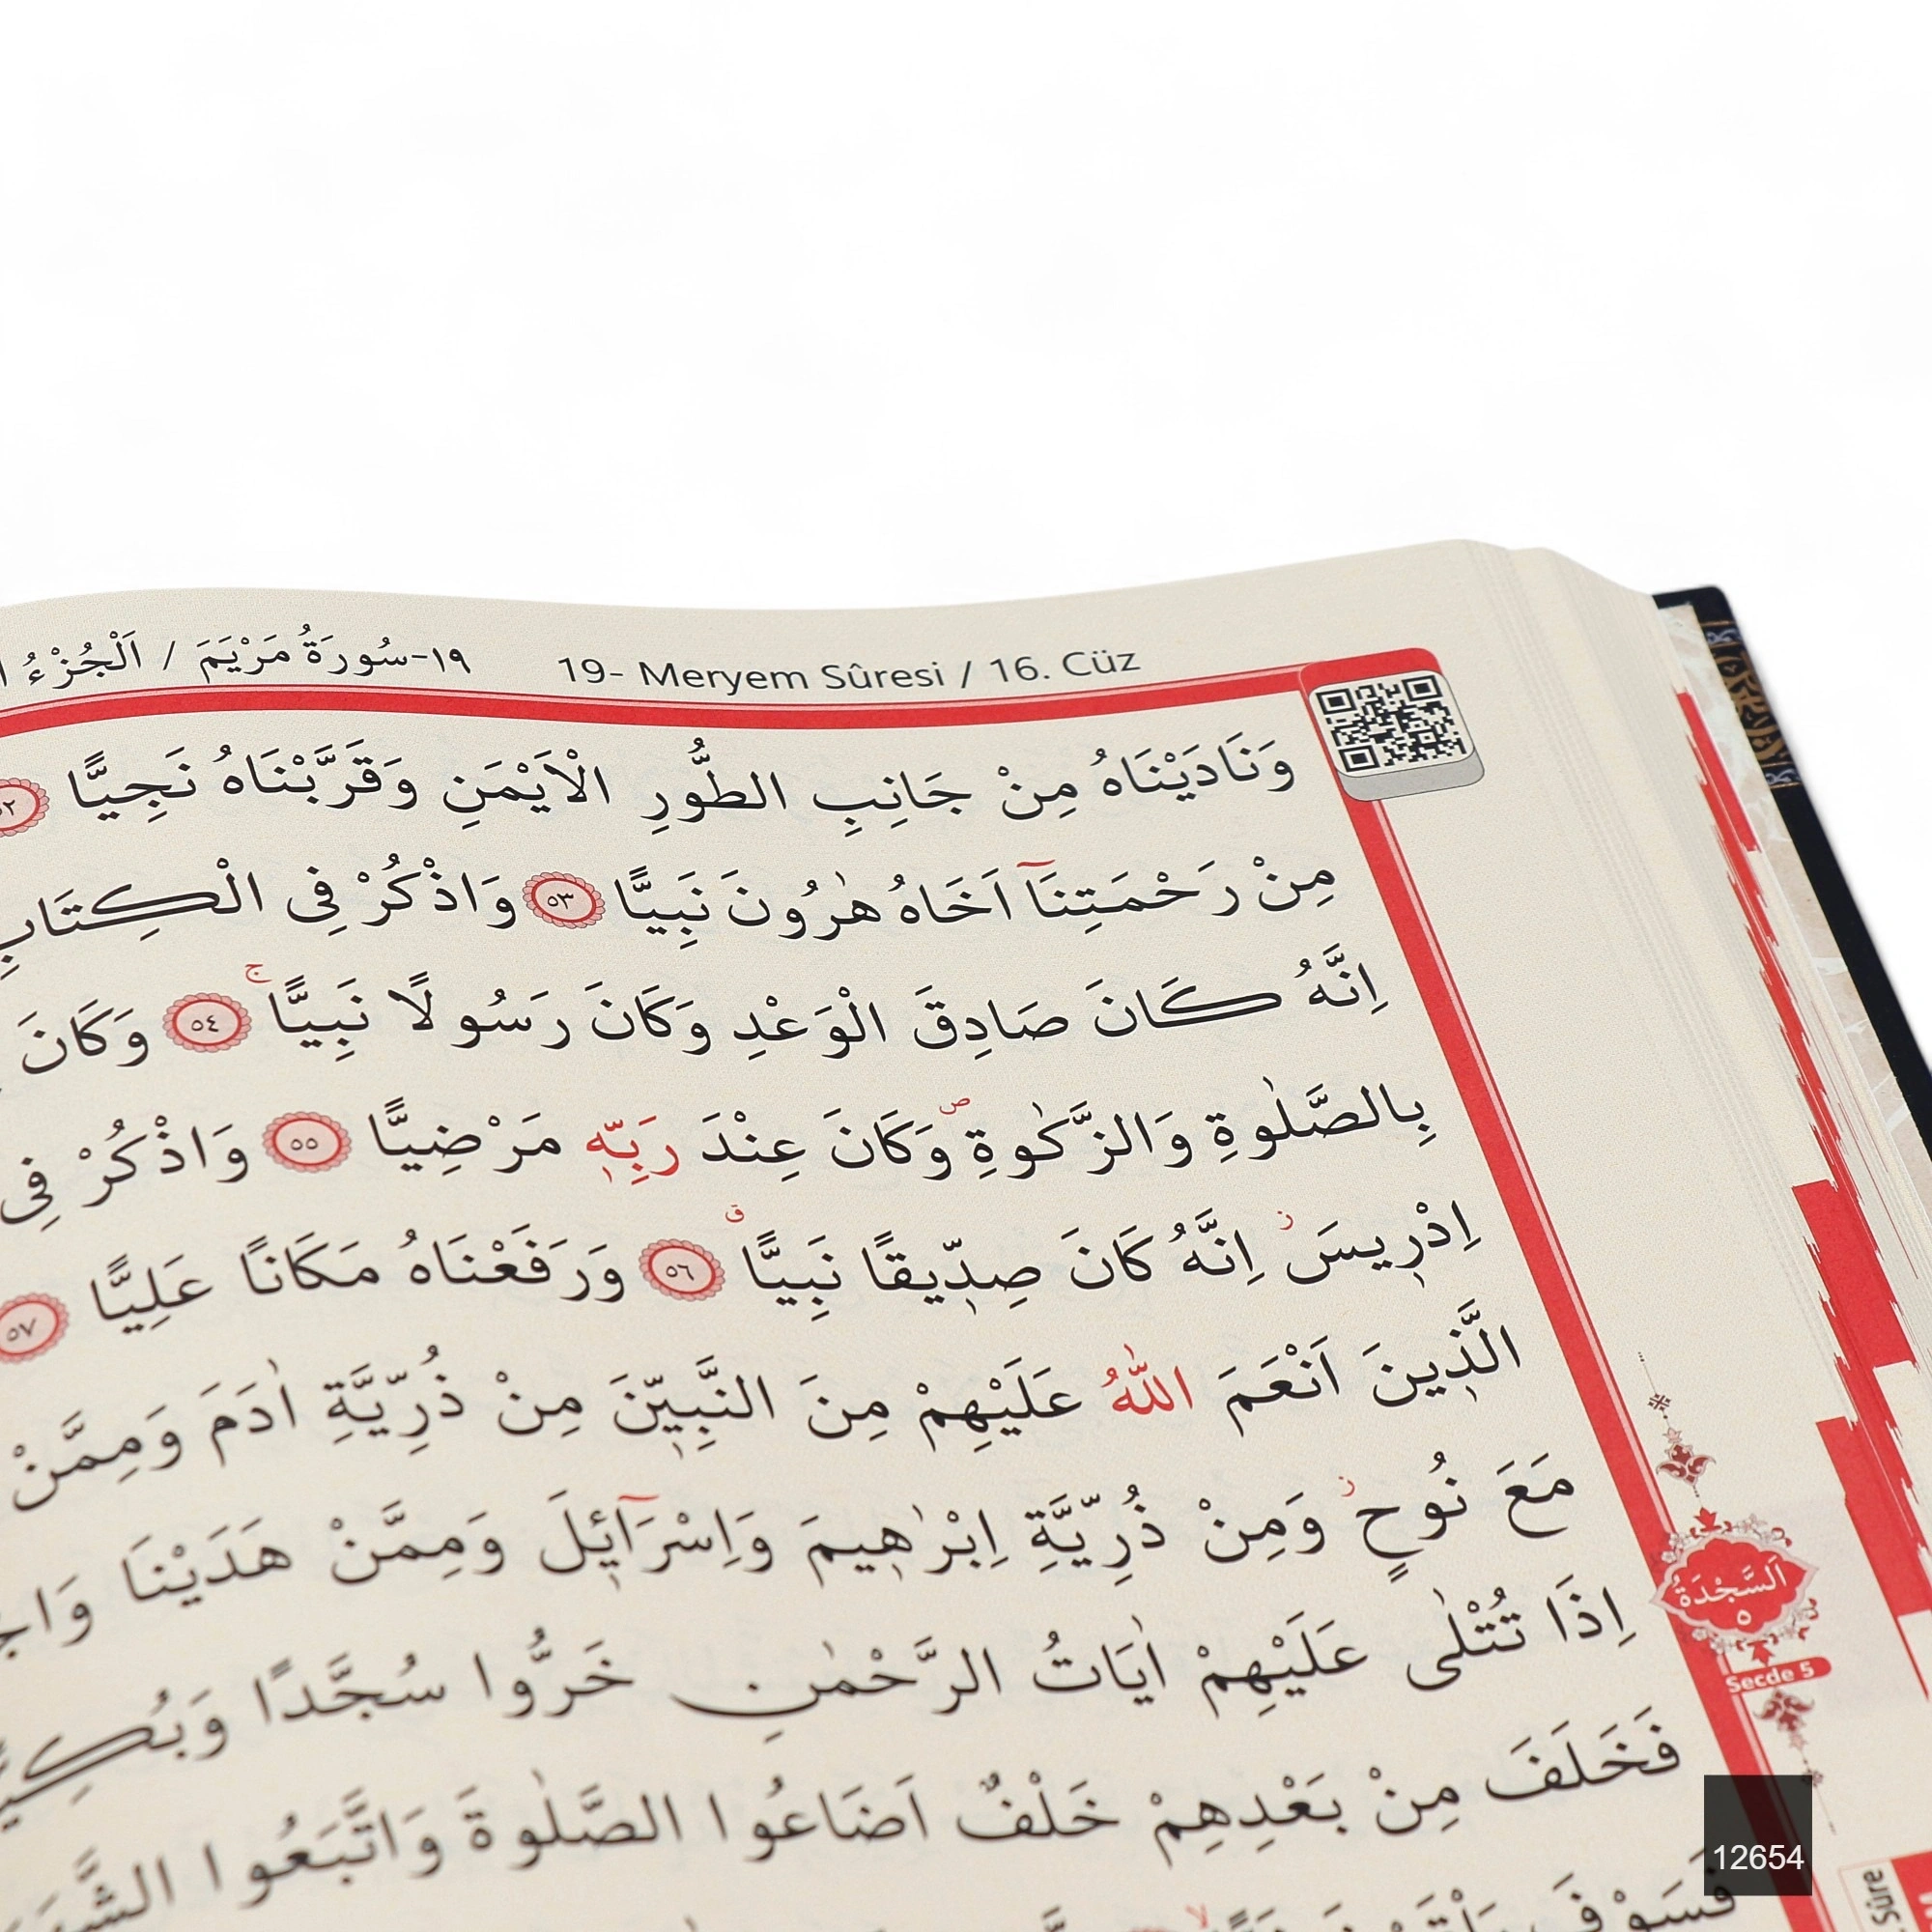 19- Meryem Sûresi / 16. Cüz
١٩-سُورَةُ مَرْيَمَ / اَلْجُزْءُ
وَنَادَيْنَاهُ مِنْ جَانِبِ الطُّورِ الْاَيْمَنِ وَقَرَّبْنَاهُ نَجِيًّا ٥٢
مِنْ رَحْمَتِنَٓا اَخَاهُ هٰرُونَ نَبِيًّا ٥٣ وَاذْكُرْ فِى الْكِتَابِ
اِنَّهُ كَانَ صَادِقَ الْوَعْدِ وَكَانَ رَسُولًا نَبِيًّا ج ٥٤ وَكَانَ
بِالصَّلٰوةِ وَالزَّكٰوةِ ص وَكَانَ عِنْدَ رَبِّهٖ مَرْضِيًّا ٥٥ وَاذْكُرْ فِى
اِدْرٖيسَ ز اِنَّهُ كَانَ صِدّٖيقًا نَبِيًّا ق ٥٦ وَرَفَعْنَاهُ مَكَانًا عَلِيًّا ٥٧
الَّذٖينَ اَنْعَمَ اللّٰهُ عَلَيْهِمْ مِنَ النَّبِيّٖنَ مِنْ ذُرِّيَّةِ اٰدَمَ وَمِمَّنْ
مَعَ نُوحٍ ز وَمِنْ ذُرِّيَّةِ اِبْرٰهٖيمَ وَاِسْرَٓائٖلَ وَمِمَّنْ هَدَيْنَا
اِذَا تُتْلٰى عَلَيْهِمْ اٰيَاتُ الرَّحْمٰنِ خَرُّوا سُجَّدًا وَبُكِيًّا
اَلسَّجْدَةُ
٥
Secde 5
فَخَلَفَ مِنْ بَعْدِهِمْ خَلْفٌ اَضَاعُوا الصَّلٰوةَ وَاتَّبَعُوا
فَسَوْفَ
Sûre
12654